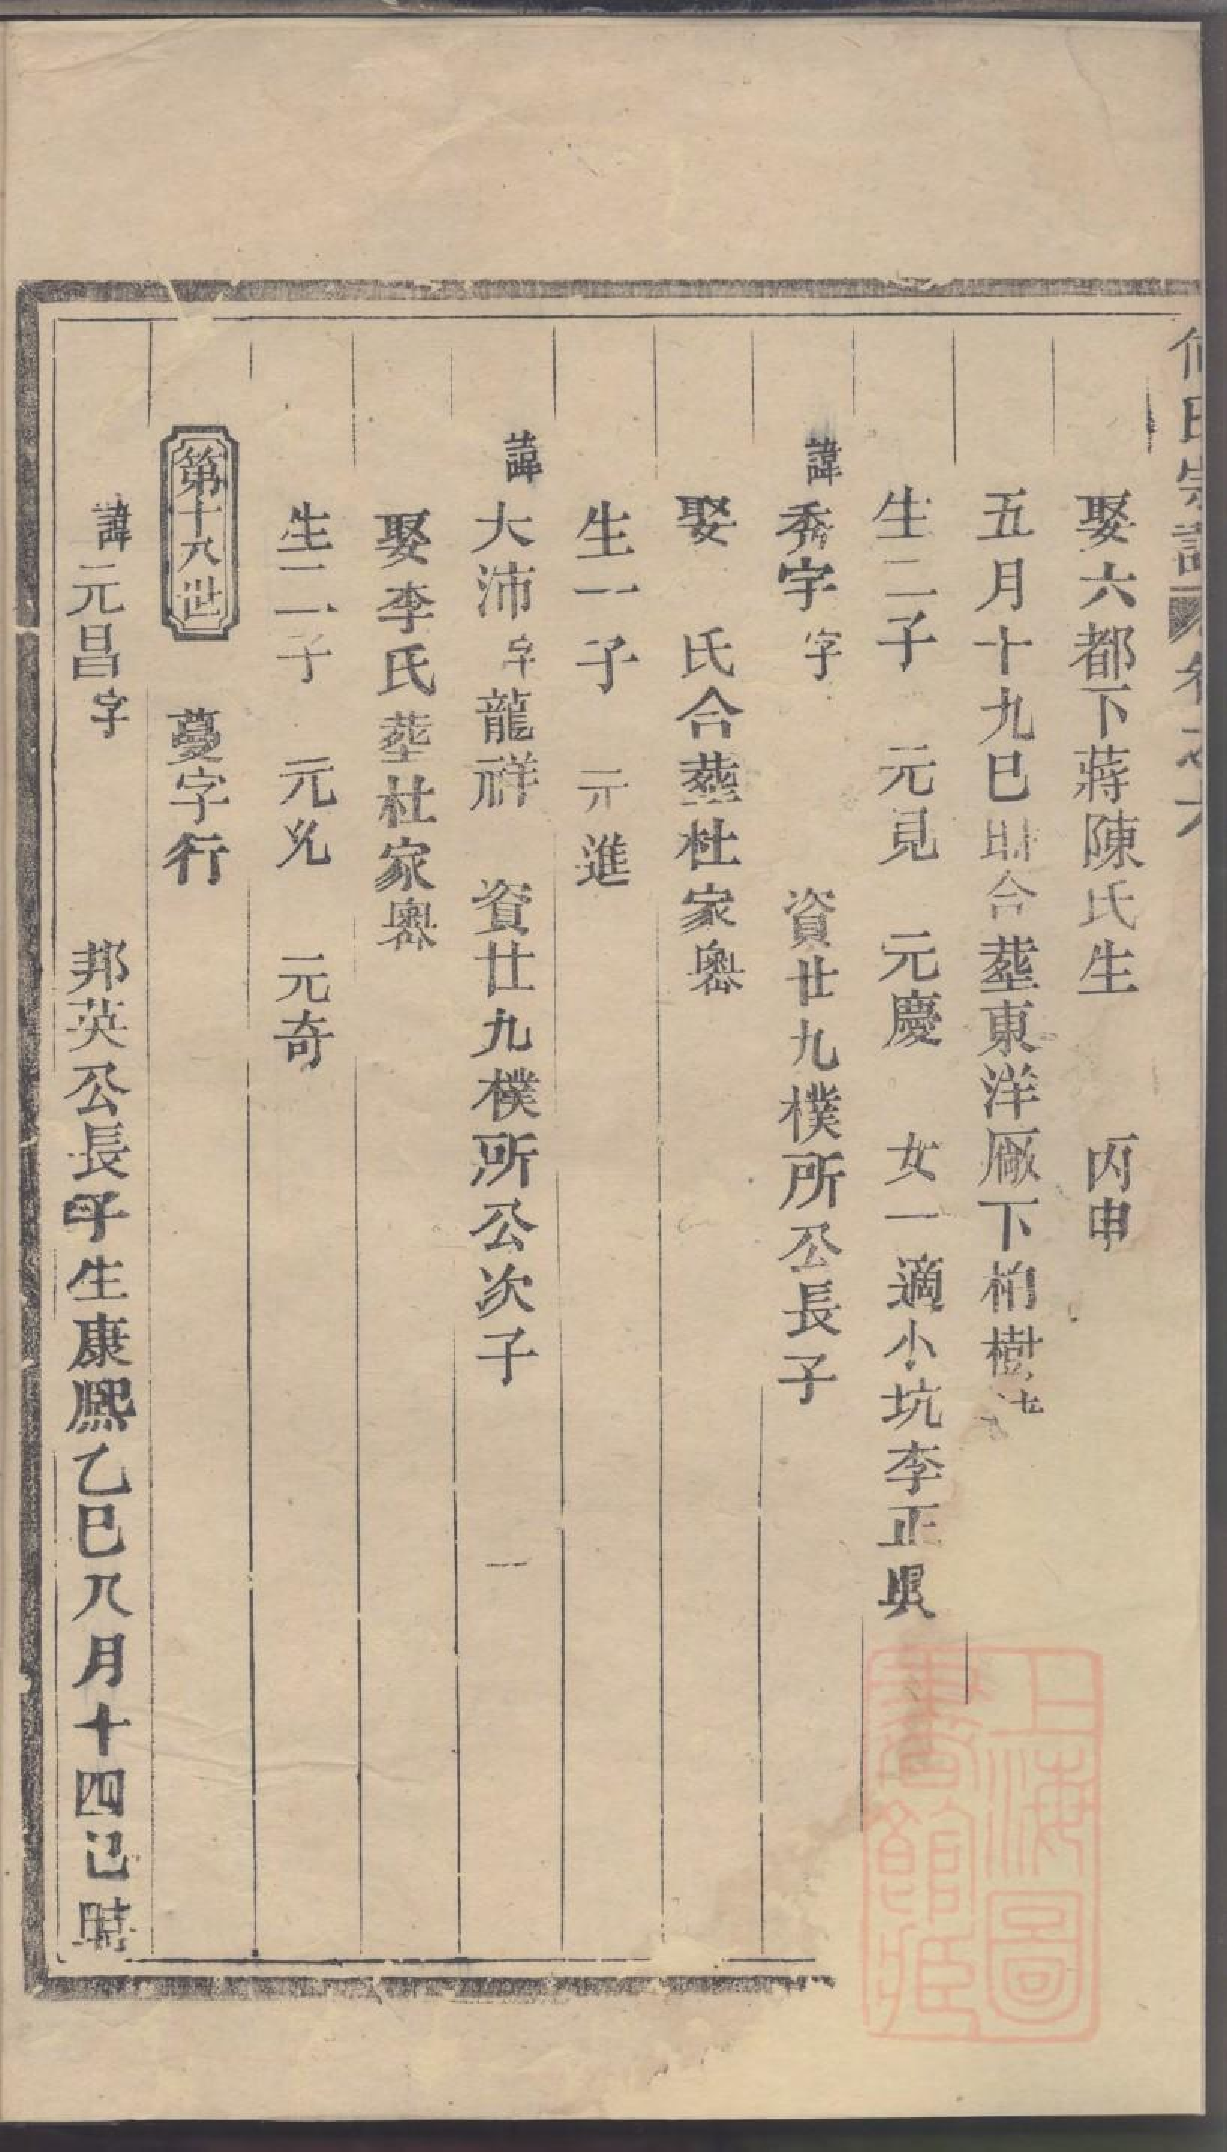 氏宗譜
娶六都下蔣陳氏生 丙申
五月十九巳時合塟東洋厰下柏樹
生二子 元見 元慶 女一適小坑李正興
諱秀宇字 資廿九樸所公長子
娶 氏合塟杜家奧
生一子 元進
諱大沛字龍祥 資廿九樸所公次子
娶李氏塟杜家奧
生二子 元兆 元奇
第十八世 蔓字行
諱元昌字 邦英公長子生康熙乙巳八月十四巳時
上海圖書館藏